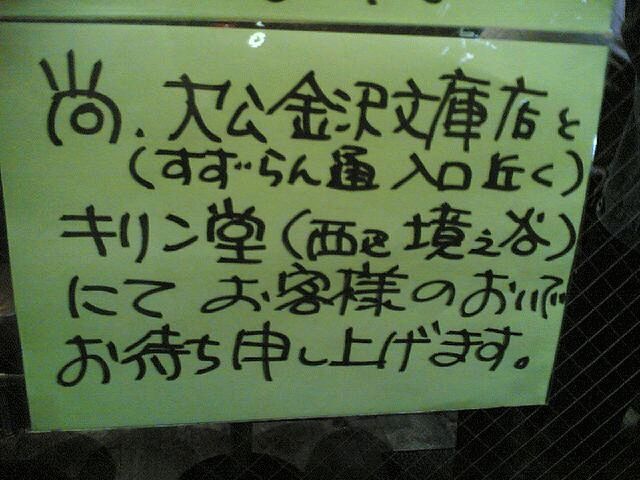 尚、大公金沢文庫店と
(すずらん通入口近く)
キリン堂(西区境之谷)
にてお客様のおいで
お待ち申し上げます。